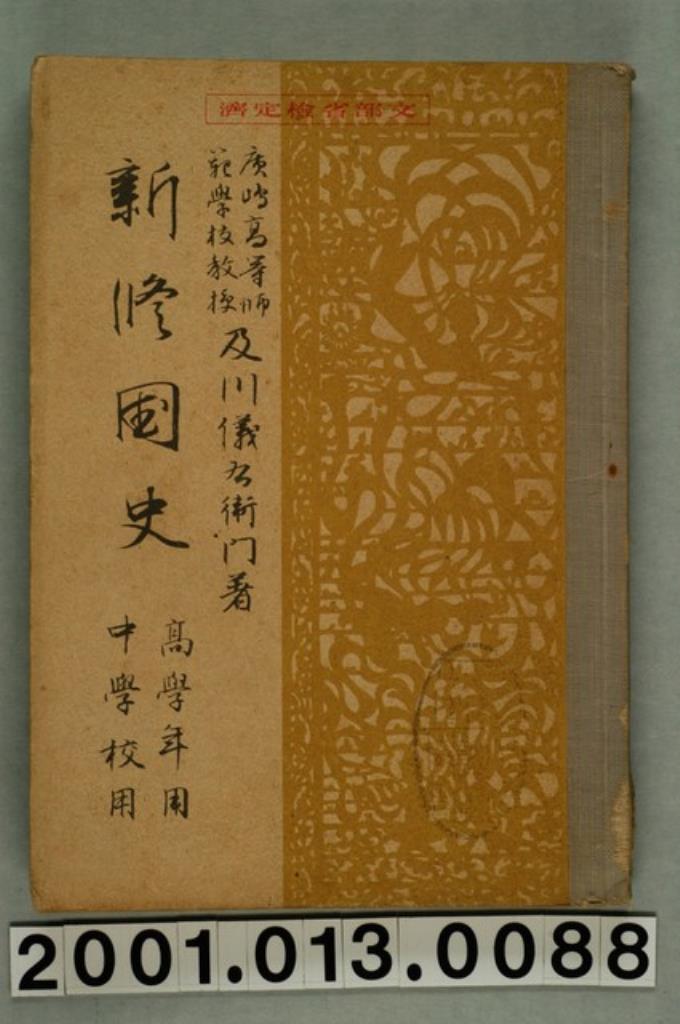 文部省檢定濟
廣嶋高等師
範學校教授
及川儀右衛門著
新修國史
高學年用
中學校用
2001.013.0088